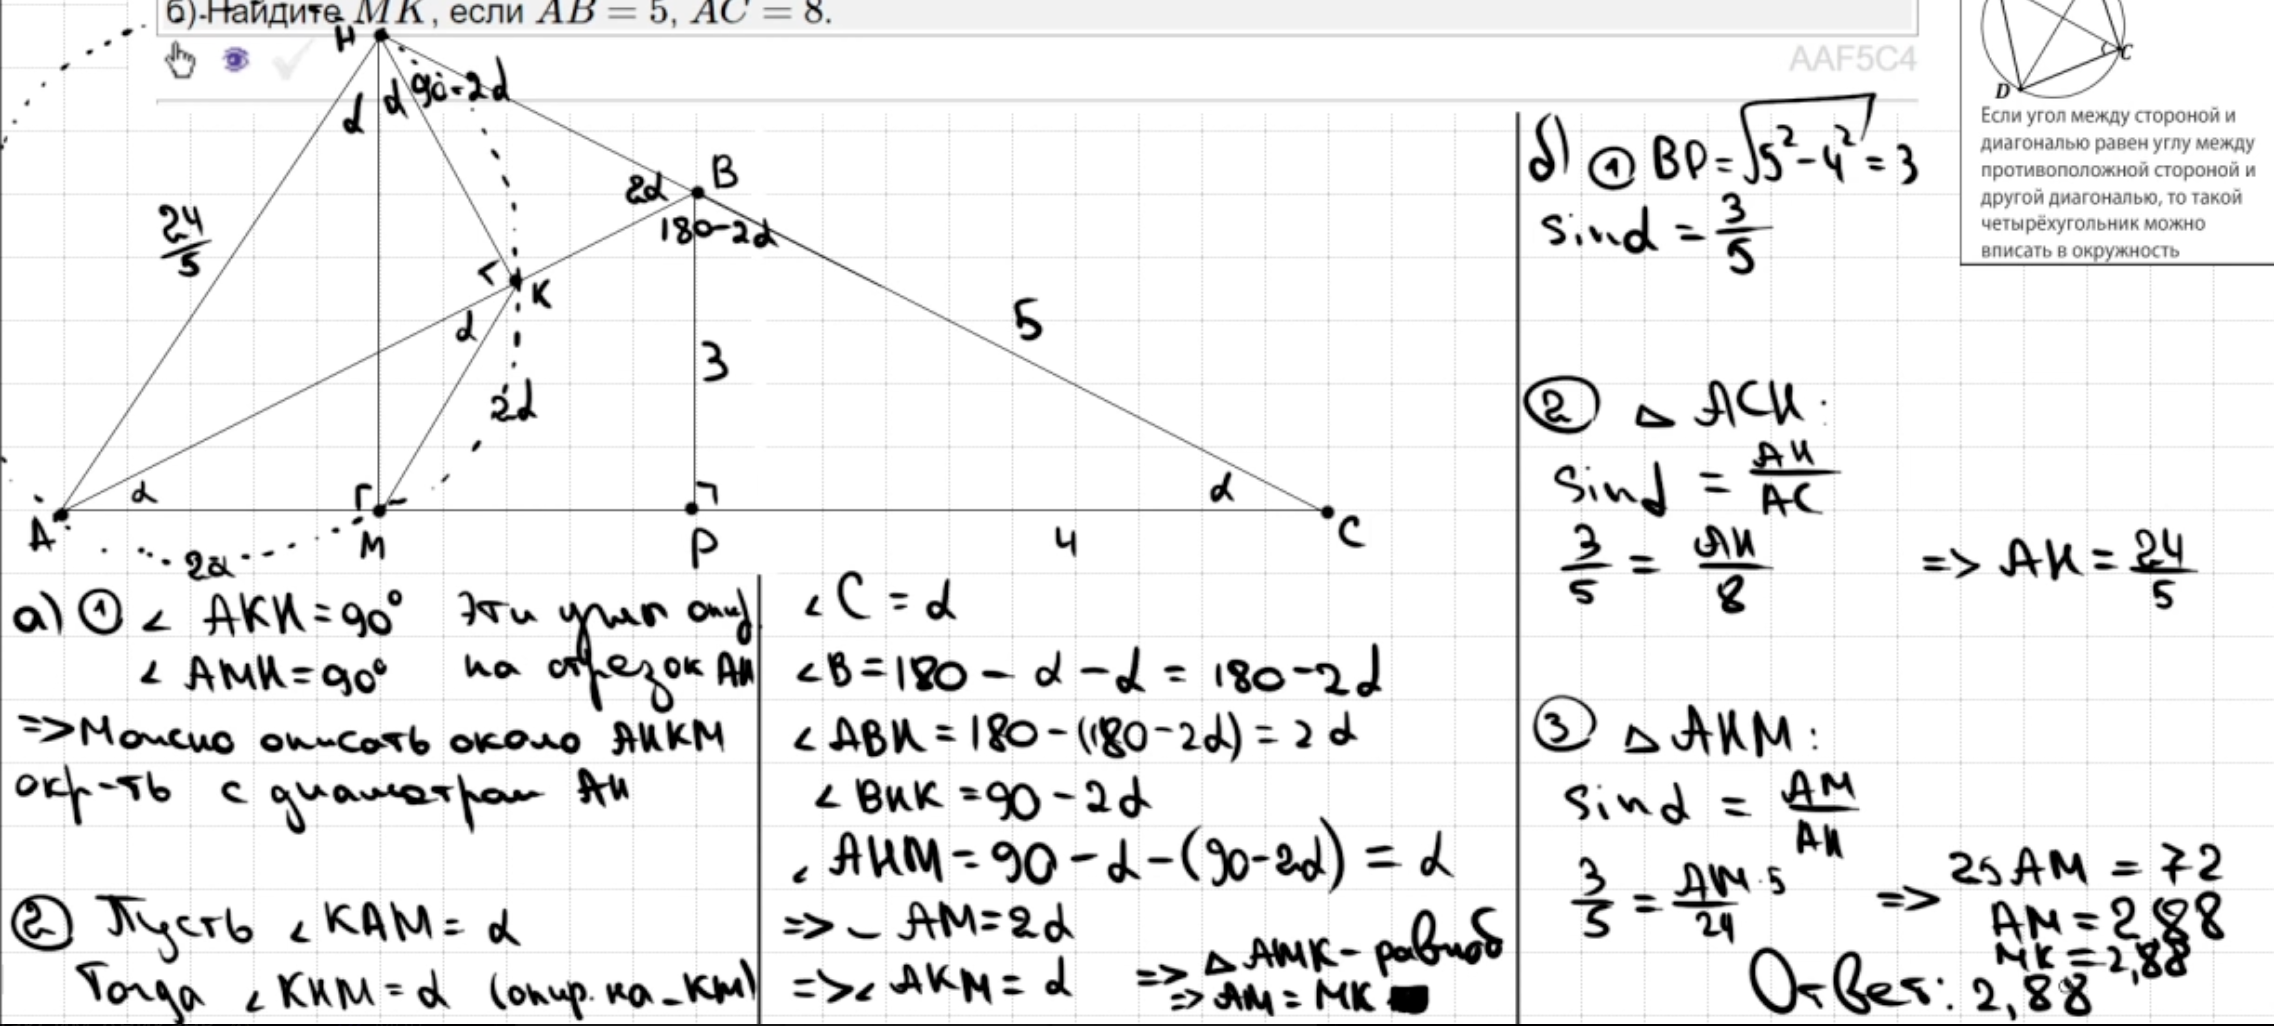 б) Найдите MK, если AB = 5, AC = 8.
AAF5C4
H
α
α
90-2α
24/5
2α
B
180-2α
K
α
5
3
2α
α
α
A
M
P
C
4
2α
C
D
Если угол между стороной и
диагональю равен углу между
противоположной стороной и
другой диагональю, то такой
четырёхугольник можно
вписать в окружность
а) ① ∠ AKH = 90° Эти углы опир.
∠ AMH = 90° на отрезок AH
=> Можно описать около AHKM
окр-ть с диаметром AH
② Пусть ∠ KAM = α
Тогда ∠ KHM = α (опир. на ◡KM)
∠ C = α
∠B = 180 - α - α = 180-2α
∠ ABH = 180 - (180-2α) = 2α
∠ BHK = 90-2α
∠ AHM = 90-α-(90-2α) = α
=> ◡ AM = 2α
=> ∠ AKM = α => △ AMK - равноб
=> AM = MK
б) ① BP = √5²-4² = 3
sinα = 3/5
② △ ACH:
sinα = AH/AC
3/5 = AH/8 => AH = 24/5
③ △ AHM:
sinα = AM/AH
3/5 = AM·5/24 => 25AM = 72
AM = 2,88
MK = 2,88
Ответ: 2,88